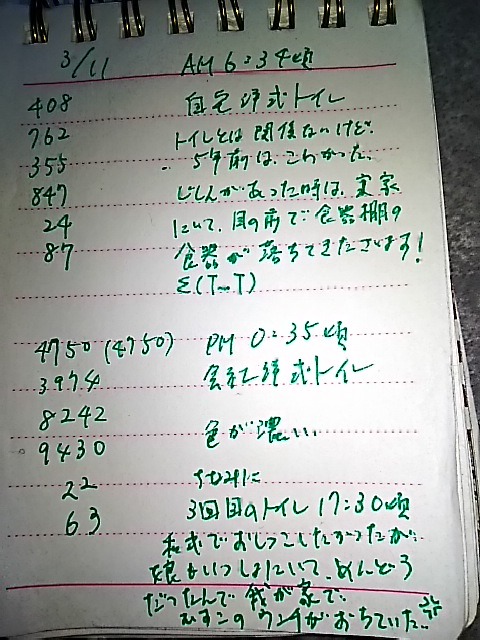 3/11 AM 6:34頃
408 自宅洋式トイレ
762 トイレとは関係ないけど、
355 5年前は、こわかった。
847 じしんがあった時は、実家
24 にいて、目の前で食器棚の
87 食器が落ちてきたざいます!
Σ(T_T)
4750 (4750) PM 0:35頃
3974 会社洋式トイレ
8242
9430 色が濃いい
22 ちなみに
63 3回目のトイレ 17:30頃
和式でおしっこしたかったが、
娘もいっしょにいて、めんどう
だったんで 我が家で、
むすこのウンチがおちていた